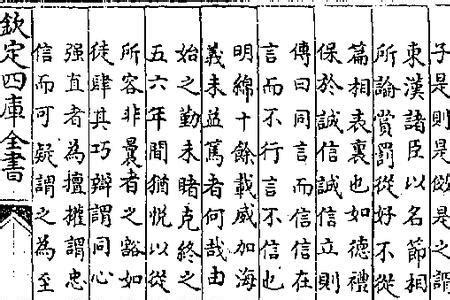 子是則是傚是之謂
東漢諸臣以名節相
所論賞罰從好不從
篇相表裏也如德禮
保於誠信誠信立則
傳曰同言而信信在
言而不行言不信也
明綿十餘載威加海
義未益篤者何哉由
始之勤未睹克終之
五六年間猶悦以從
所容非曩者之豁如
徒肆其巧辯謂同心
强直者為擅權謂忠
信而可疑謂之為至
欽定四庫全書